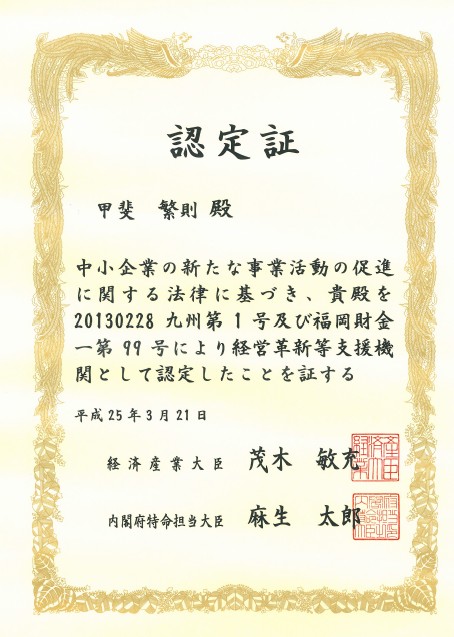 認定証
甲斐 繁則 殿
中小企業の新たな事業活動の促進
に関する法律に基づき、貴殿を
20130228 九州第1号及び福岡財金
一第99号により経営革新等支援機
関として認定したことを証する
平成25年3月21日
経済産業大臣 茂木 敏充
内閣府特命担当大臣 麻生 太郎